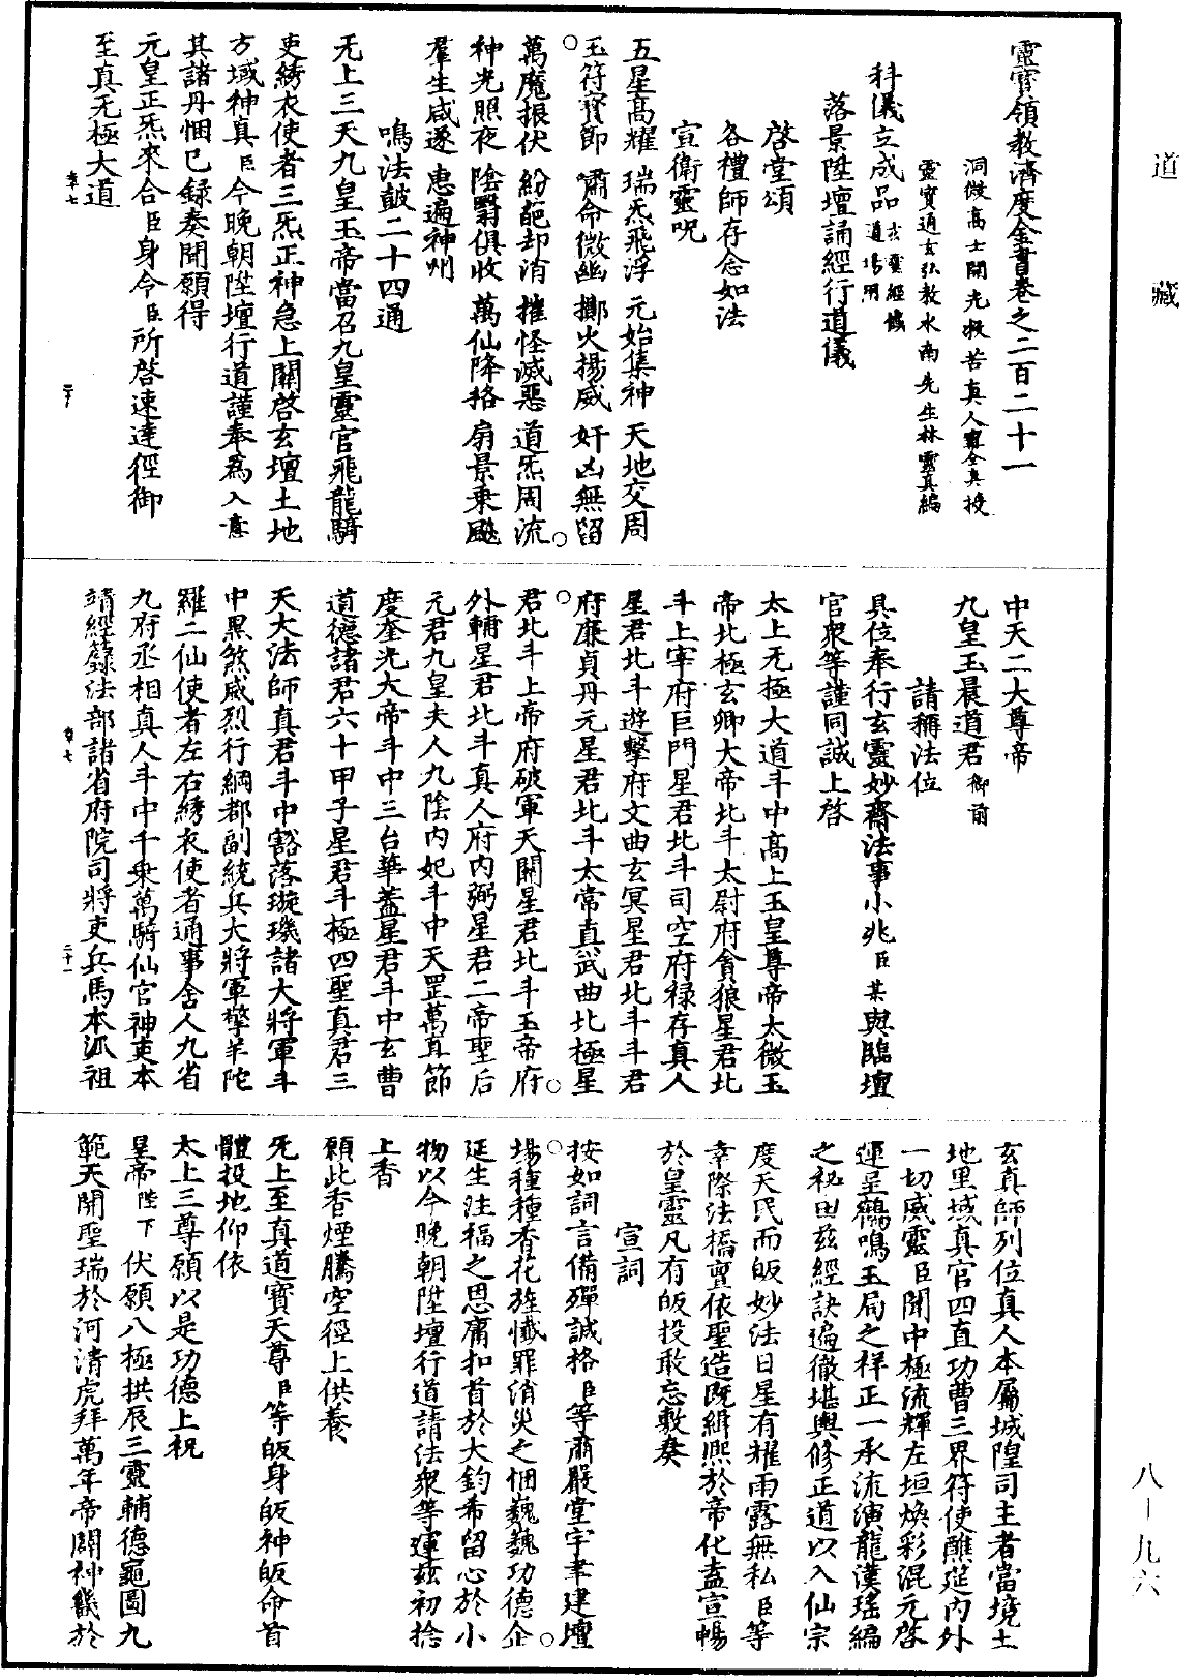 道藏
靈寶領教濟度金書卷之二百二十一
洞微高士開光救苦真人甯全真授
靈寶通玄弘教水南先生林靈真編
科儀立成品玄靈經懺道場用
落景陞壇誦經行道儀
啓堂頌
各禮師存念如法
宣衛靈呪
五星高耀 瑞炁飛浮 元始集神 天地交周
玉符寶節 嘯命微幽 擲火揚威 奸凶無留
萬魔振伏 紛葩却消 摧怪滅惡 道炁周流
神光照夜 陰翳俱收 萬仙降格 扇景乘飈
羣生咸遂 惠遍神州
鳴法鼓二十四通
无上三天九皇玉帝當召九皇靈官飛龍騎
吏綉衣使者三炁正神急上關啓玄壇土地
方域神真臣今晚朝陞壇行道謹奉爲入意
其諸丹悃已録奏聞願得
元皇正炁來合臣身令臣所啓速達徑御
至真无極大道
中天二大尊帝
九皇玉晨道君御前
請稱法位
具位奉行玄靈妙齋法事小兆臣某與臨壇
官衆等謹同誠上啓
太上无極大道斗中高上玉皇尊帝太微玉
帝北極玄卿大帝北斗太尉府貪狼星君北
斗上宰府巨門星君北斗司空府禄存真人
星君北斗遊擊府文曲玄冥星君北斗斗君
府廉貞丹元星君北斗太常真武曲北極星
君北斗上帝府破軍天關星君北斗玉帝府
外輔星君北斗真人府内弼星君二帝聖后
元君九皇夫人九陰内妃斗中天罡萬真節
度奎光大帝斗中三台華蓋星君斗中玄曹
道德諸君六十甲子星君斗極四聖真君三
天大法師真君斗中豁落璇璣諸大將軍斗
中黑煞威烈行綱都副統兵大將軍擎羊陀
羅二仙使者左右綉衣使者通事舍人九省
九府丞相真人斗中千乘萬騎仙官神吏本
靖經籙法部諸省府院司將吏兵馬本派祖
玄真師列位真人本屬城隍司主者當境土
地里域真官四直功曹三界符使醮筵内外
一切威靈臣聞中極流輝左垣煥彩混元啓
運呈鶴鳴玉局之祥正一承流演龍漢瑤編
之祕由兹經訣遍徹堪輿修正道以入仙宗
度天民而皈妙法日星有耀雨露無私臣等
幸際法橋亶依聖造既緝熙於帝化盍宣暢
於皇靈凡有皈投敢忘敷奏
宣詞
按如詞言備殫誠格臣等肅嚴堂宇聿建壇
場種種香花旌懺罪消災之悃巍巍功德企
延生注福之恩庸扣首於大鈞希留心於小
物以今晚朝陞壇行道請法衆等運兹初捻
上香
願此香煙騰空徑上供養
无上至真道寶天尊臣等皈身皈神皈命首
體投地仰依
太上三尊願以是功德上祝
皇帝陛下伏願八極拱辰三靈輔德龜圖九
範天開聖瑞於河清虎拜萬年帝闢神畿於
八－九六